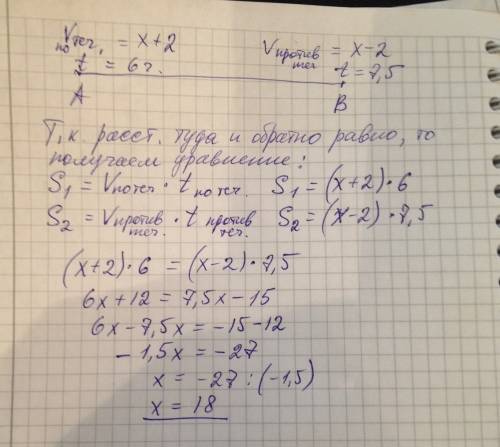 Vпо теч. = x+2 Vпротив теч = x-2
t = 6ч. t = 7,5
A B
Т,к. расст. туда и обратно равно, то
получаем уравнение:
S₁ = Vпо теч · t по теч. S₁ = (x+2)·6
S₂ = Vпротив теч. · t против теч. S₂ = (x-2)·7,5
(x+2)·6 = (x-2)·7,5
6x+12 = 7,5x-15
6x-7,5x = -15-12
-1,5x = -27
x = -27:(-1,5)
x = 18